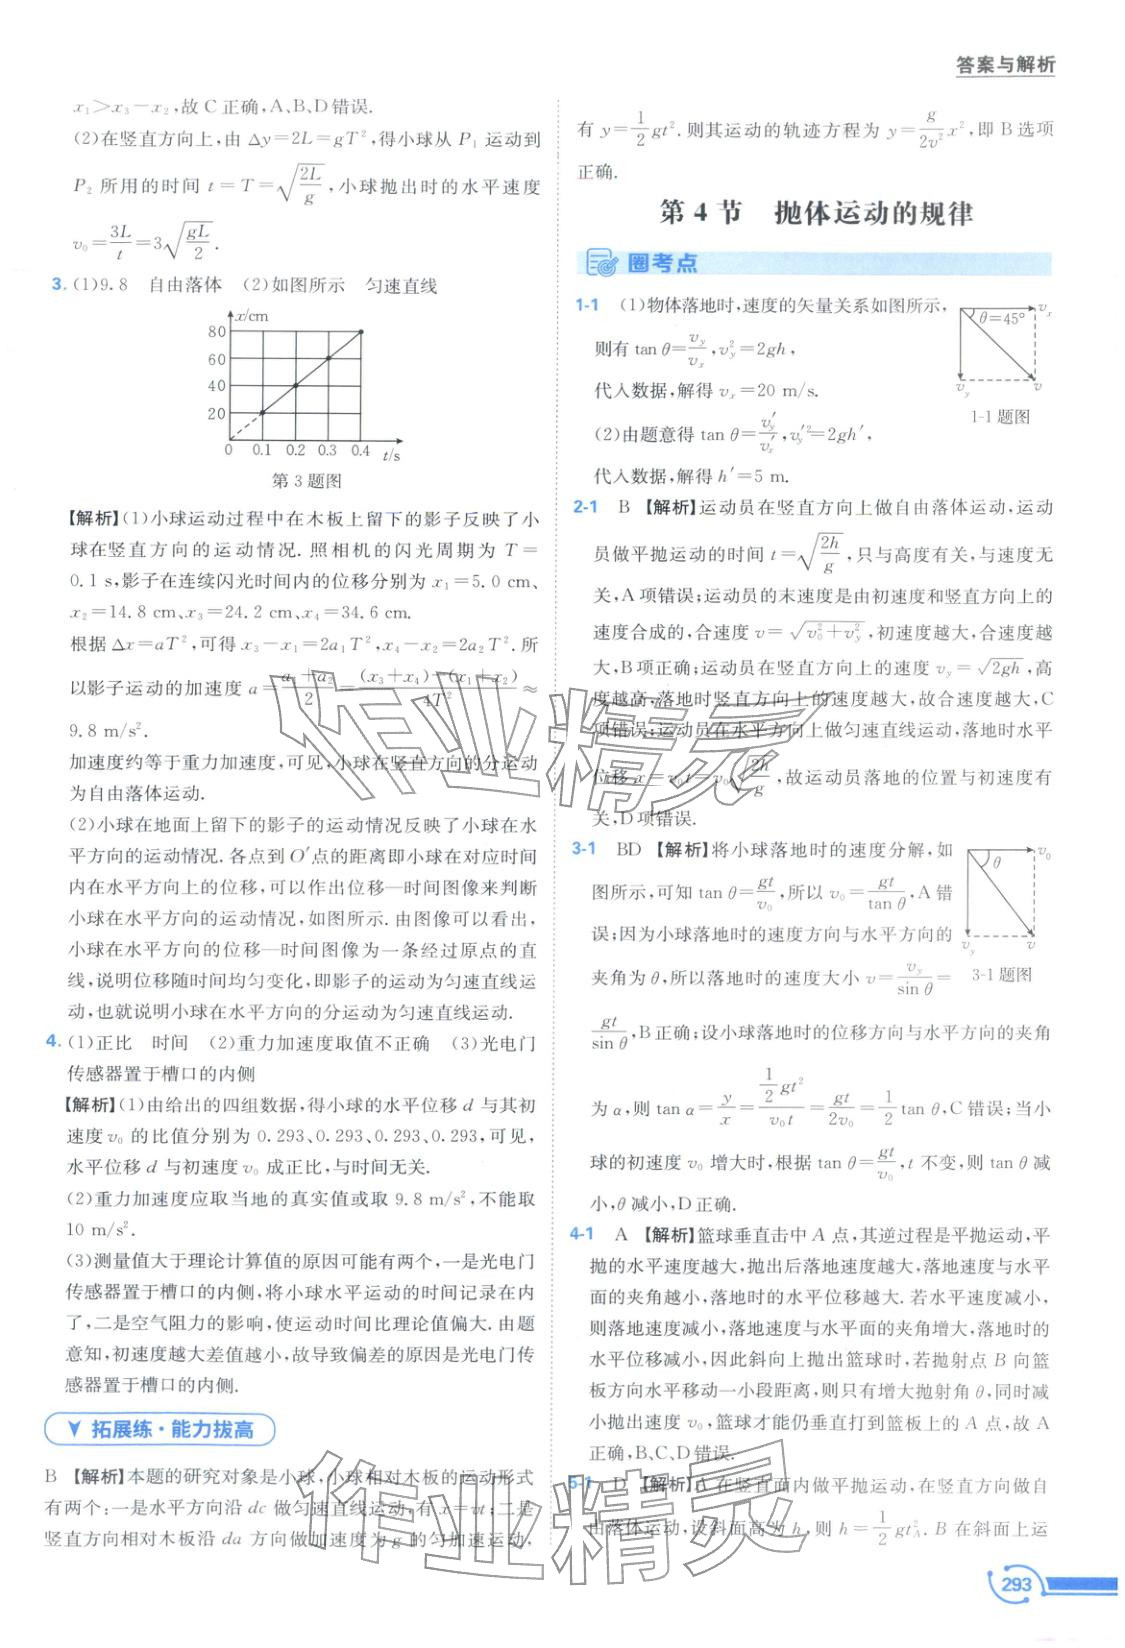 答案与解析
x₁>x₃-x₂,故C正确,A、B、D错误.
(2)在竖直方向上,由Δy=2L=gT²,得小球从P₁运动到
P₂所用的时间t=T=√(2L/g),小球抛出时的水平速度
v₀=3L/t=3√(gL/2).
3. (1)9.8 自由落体 (2)如图所示 匀速直线
x/cm
80
60
40
20
0 0.1 0.2 0.3 0.4 t/s
第3题图
【解析】(1)小球运动过程中在木板上留下的影子反映了小
球在竖直方向的运动情况.照相机的闪光周期为T=
0.1 s,影子在连续闪光时间内的位移分别为x₁=5.0 cm、
x₂=14.8 cm、x₃=24.2 cm、x₄=34.6 cm.
根据Δx=aT²,可得x₃-x₁=2a₁T²,x₄-x₂=2a₂T².所
以影子运动的加速度a=(a₁+a₂)/2=((x₃+x₄)-(x₁+x₂))/4T²≈
9.8 m/s².
加速度约等于重力加速度,可见,小球在竖直方向的分运动
为自由落体运动.
(2)小球在地面上留下的影子的运动情况反映了小球在水
平方向的运动情况.各点到O′点的距离即小球在对应时间
内在水平方向上的位移,可以作出位移—时间图像来判断
小球在水平方向的运动情况,如图所示.由图像可以看出,
小球在水平方向的位移—时间图像为一条经过原点的直
线,说明位移随时间均匀变化,即影子的运动为匀速直线运
动,也就说明小球在水平方向的分运动为匀速直线运动.
4. (1)正比 时间 (2)重力加速度取值不正确 (3)光电门
传感器置于槽口的内侧
【解析】(1)由给出的四组数据,得小球的水平位移d与其初
速度v₀的比值分别为0.293、0.293、0.293、0.293,可见,
水平位移d与初速度v₀成正比,与时间无关.
(2)重力加速度应取当地的真实值或取9.8 m/s²,不能取
10 m/s².
(3)测量值大于理论计算值的原因可能有两个,一是光电门
传感器置于槽口的内侧,将小球水平运动的时间记录在内
了,二是空气阻力的影响,使运动时间比理论值偏大.由题
意知,初速度越大差值越小,故导致偏差的原因是光电门传
感器置于槽口的内侧.
拓展练·能力拔高
B 【解析】本题的研究对象是小球,小球相对木板的运动形式
有两个:一是水平方向沿dc做匀速直线运动,有x=vt;二是
竖直方向相对木板沿da方向做加速度为g的匀加速运动,
有y=1/2gt².则其运动的轨迹方程为y=g/2v²x²,即B选项
正确.
第4节 抛体运动的规律
圈考点
1-1 (1)物体落地时,速度的矢量关系如图所示,
则有tan θ=v_y/v_x,v_y²=2gh,
代入数据,解得v_x=20 m/s.
(2)由题意得tan θ=v_y′/v_x′,v_y′²=2gh′,
代入数据,解得h′=5 m.
v_x
θ=45°
v_y v
1-1题图
2-1 B 【解析】运动员在竖直方向上做自由落体运动,运动
员做平抛运动的时间t=√(2h/g),只与高度有关,与速度无
关,A项错误;运动员的末速度是由初速度和竖直方向上的
速度合成的,合速度v=√(v₀²+v_y²),初速度越大,合速度越
大,B项正确;运动员在竖直方向上的速度v_y=√(2gh),高
度越高,落地时竖直方向上的速度越大,故合速度越大,C
项错误;运动员在水平方向上做匀速直线运动,落地时水平
位移x=v₀t=v₀√(2h/g),故运动员落地的位置与初速度有
关,D项错误.
3-1 BD 【解析】将小球落地时的速度分解,如
图所示,可知tan θ=gt/v₀,所以v₀=gt/tan θ,A错
误;因为小球落地时的速度方向与水平方向的
夹角为θ,所以落地时的速度大小v=v_y/sin θ=
v₀
θ
v_y v
3-1题图
gt/sin θ,B正确;设小球落地时的位移方向与水平方向的夹角
为α,则tan α=y/x=(1/2gt²)/v₀t=gt/2v₀=1/2tan θ,C错误;当小
球的初速度v₀增大时,根据tan θ=gt/v₀,t不变,则tan θ减
小,θ减小,D正确.
4-1 A 【解析】篮球垂直击中A点,其逆过程是平抛运动,平
抛的水平速度越大,抛出后落地速度越大,落地速度与水平
面的夹角越小,落地时的水平位移越大.若水平速度减小,
则落地速度减小,落地速度与水平面的夹角增大,落地时的
水平位移减小,因此斜向上抛出篮球时,若抛射点B向篮
板方向水平移动一小段距离,则只有增大抛射角θ,同时减
小抛出速度v₀,篮球才能仍垂直打到篮板上的A点,故A
正确,B、C、D错误.
5-1 D 【解析】A在竖直面内做平抛运动,在竖直方向做自
由落体运动,设斜面高为h,则h=1/2gt_A².B在斜面上运
293
作业精灵
作业精灵